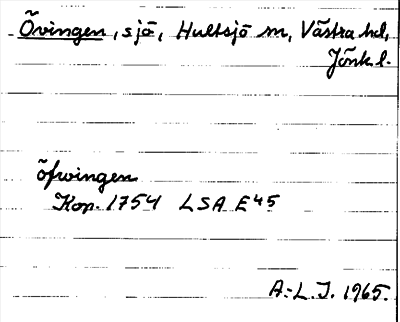 Övingen, sjö, Hultsjö sn, Västra hd,
Jönk. l.
öfwingen
Kop. 1754 LSA E45
A.-L.J. 1965.